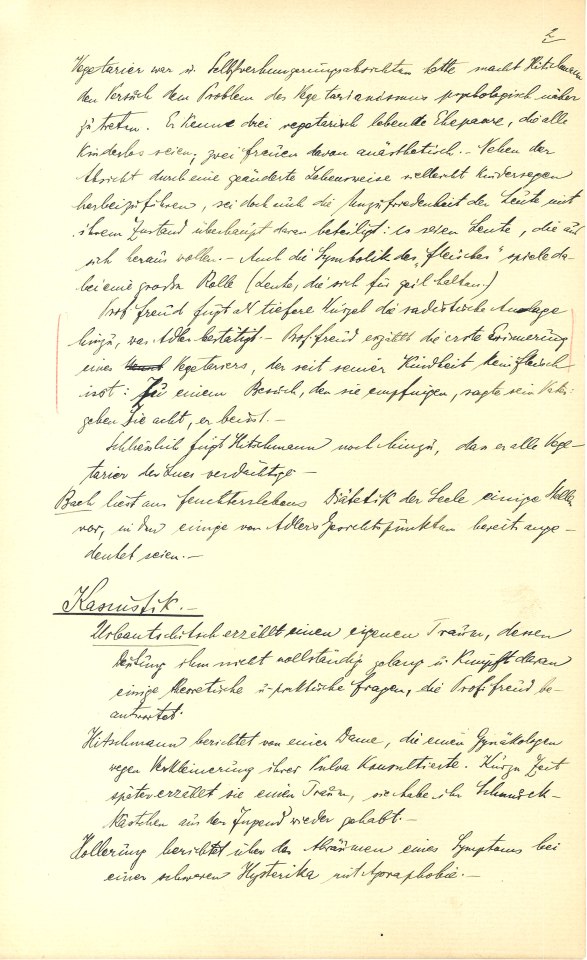 2
Vegetarier war u. Selbstverhungerungsabsichten hatte macht Hitschmann
den Versuch dem Problem des Vegetarianismus psychologisch näher
zu treten. Er kenne drei vegetarisch lebende Ehepaare, die alle
kinderlos seien; zwei Frauen davon anästhetisch. — Neben der
Absicht durch eine geänderte Lebensweise vielleicht Kindersegen
herbeizuführen, sei doch auch die Unzufriedenheit der Leute mit
ihrem Zustand überhaupt daran beteiligt: es seien Leute, die aus
sich heraus wollen. — Auch die Symbolik des „Fleisches" spiele da-
bei eine große Rolle (Leute, die sich für geil halten.)
Prof. Freud fügt als tiefere Wurzel die sadistische Anlage
hinzu, was Adler bestätigt. — Prof. Freud erzählt die erste Erinnerung
eines Vegetariers, der seit seiner Kindheit kein Fleisch
isst: Zu einem Besuch, den sie empfingen, sagte sein Vater:
geben Sie acht, er beisst. —
Schliesslich fügt Hitschmann noch hinzu, dass er alle Vege-
tarier der Lues verdächtige —
Bach liest aus Feuchterslebens Diätetik der Seele einige Stellen
vor, in den einige von Adlers Gesichtspunkten bereits ange-
deutet seien. —
Kasuistik. —
Urbantschitsch erzählt einen eigenen Traum, dessen
Deutung ihm nicht vollständig gelang u. knüpft daran
einige theoretische u. praktische Fragen, die Prof. Freud be-
antwortet.
Hitschmann berichtet von einer Dame, die einen Gynäkologen
wegen Verkleinerung ihrer Vulva konsultierte. Kurze Zeit
später erzählt sie einen Traum, sie habe ihr Schmuck-
kästchen aus der Jugend wieder gehabt. —
Hollerung berichtet über das Abräumen eines Symptoms bei
einer schweren Hysterika mit Agoraphobie. —